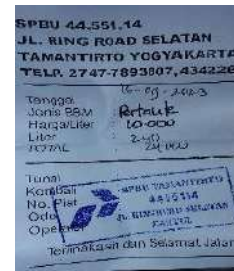 SPBU 44.551.14
JL. RING ROAD SELATAN
TAMANTIRTO YOGYAKARTA
TELP. 2747-7893807, 434226
Tanggal 16-09-2023
Jenis BBM Pertalite
Harga/Liter : 10.000
Liter : 2.40
TOTAL 24.000
Tunai
Kembali
No. Plat
Odo
Operator
SPBU TAMANTIRTO
4455114
JL. RINGROAD SELATAN
BANTUL
Terimakasih dan Selamat Jalan